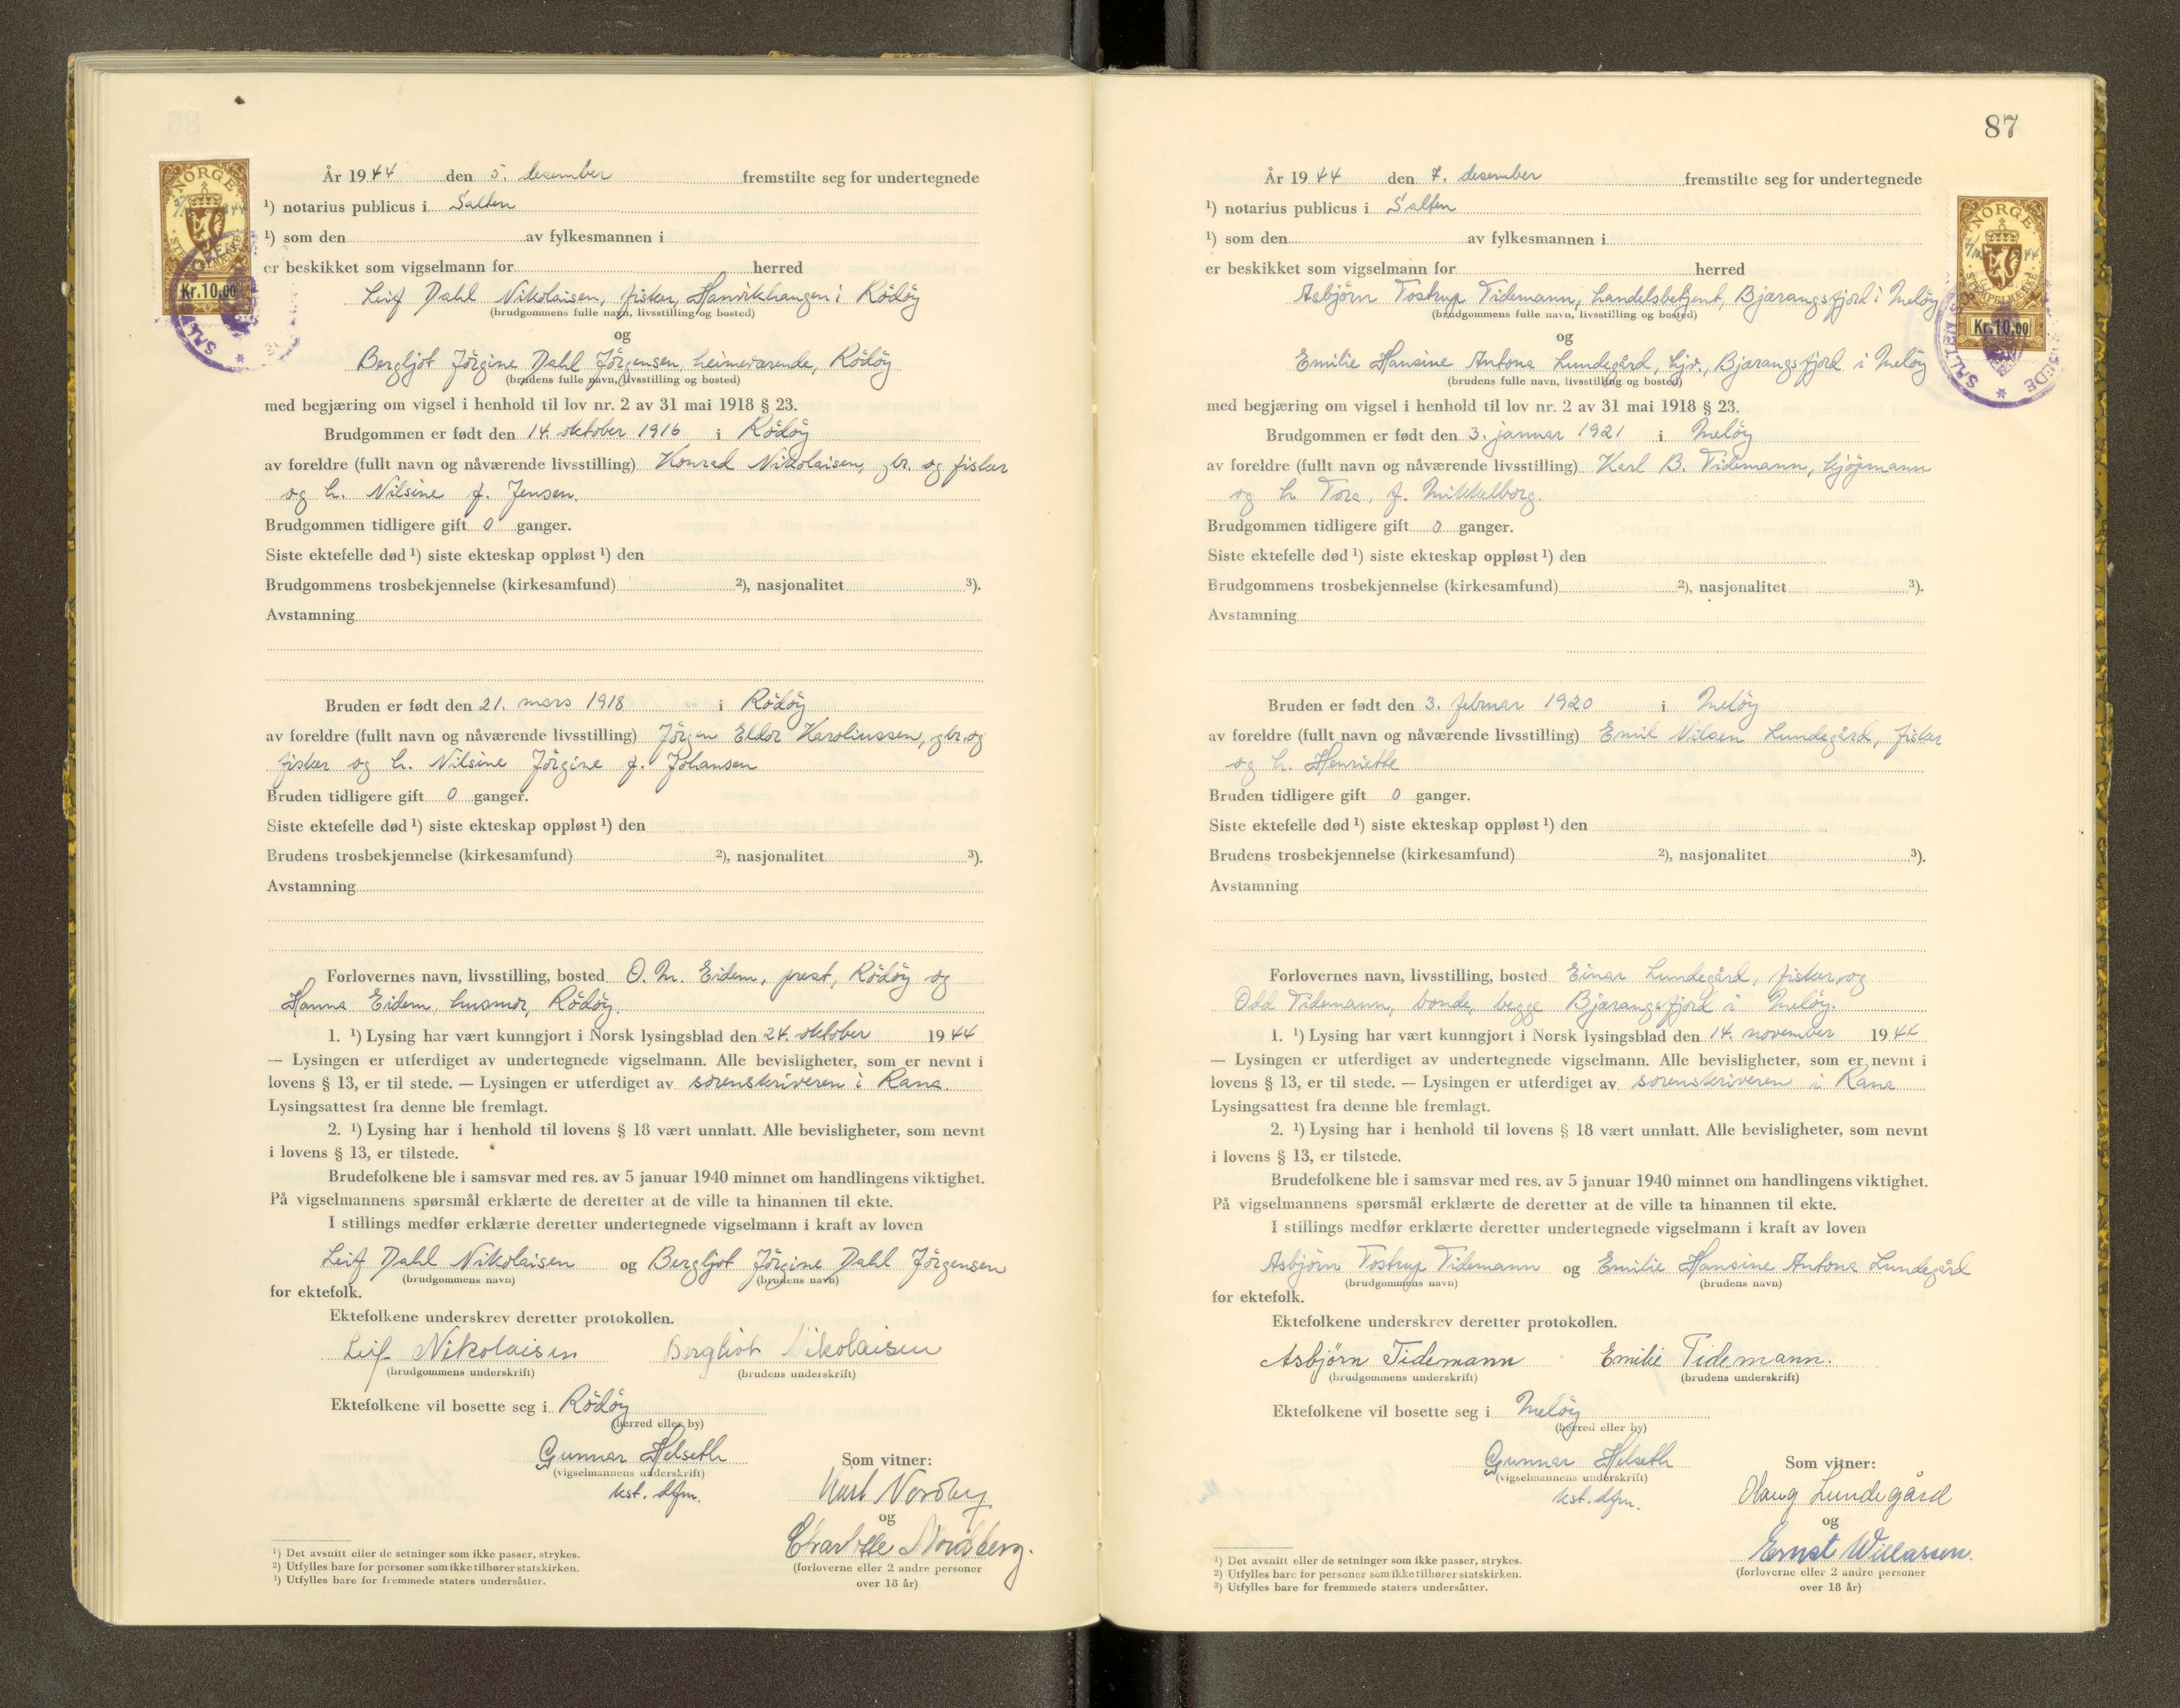 NORGE
STEMPELMERKE
Kr.10,00
År 1944 den 5. desember fremstilte seg for undertegnede
¹) notarius publicus i Salten
¹) som den av fylkesmannen i
er beskikket som vigselmann for herred
Leif Dahl Nikolaisen, fisker, Hanvikhaugen i Rödöy
(brudgommens fulle navn, livsstilling og bosted)
og
Bergljot Jörgine Dahl Jörgensen, heimeværende, Rödöy
(brudens fulle navn, livsstilling og bosted)
med begjæring om vigsel i henhold til lov nr. 2 av 31 mai 1918 § 23.
Brudgommen er født den 14. oktober 1916 i Rödöy
av foreldre (fullt navn og nåværende livsstilling) Konrad Nikolaisen, gbr. og fisker
og h. Nilsine f. Jensen.
Brudgommen tidligere gift 0 ganger.
Siste ektefelle død ¹) siste ekteskap oppløst ¹) den
Brudgommens trosbekjennelse (kirkesamfund) ²), nasjonalitet ³).
Avstamning
Bruden er født den 21. mars 1918 i Rödöy
av foreldre (fullt navn og nåværende livsstilling) Jörgen Eldor Karoliussen, gbr. og
fisker og h. Nilsine Jörgine f. Johansen
Bruden tidligere gift 0 ganger.
Siste ektefelle død ¹) siste ekteskap oppløst ¹) den
Brudens trosbekjennelse (kirkesamfund) ²), nasjonalitet ³).
Avstamning
Forlovernes navn, livsstilling, bosted O. M. Eidem, prest, Rödöy og
Hanna Eidem, husmor, Rödöy.
1. ¹) Lysing har vært kunngjort i Norsk lysingsblad den 24. oktober 1944
— Lysingen er utferdiget av undertegnede vigselmann. Alle bevisligheter, som er nevnt i
lovens § 13, er til stede. — Lysingen er utferdiget av sorenskriveren i Rana.
Lysingsattest fra denne ble fremlagt.
2. ¹) Lysing har i henhold til lovens § 18 vært unnlatt. Alle bevisligheter, som nevnt
i lovens § 13, er tilstede.
Brudefolkene ble i samsvar med res. av 5 januar 1940 minnet om handlingens viktighet.
På vigselmannens spørsmål erklærte de deretter at de ville ta hinannen til ekte.
I stillings medfør erklærte deretter undertegnede vigselmann i kraft av loven
Leif Dahl Nikolaisen og Bergljot Jörgine Dahl Jörgensen
(brudgommens navn) (brudens navn)
for ektefolk.
Ektefolkene underskrev deretter protokollen.
Leif Nikolaisen Bergliot Nikolaisen
(brudgommens underskrift) (brudens underskrift)
Ektefolkene vil bosette seg i Rödöy
(herred eller by)
Gunnar Helseth
(vigselmannens underskrift)
kst. dfm.
Som vitner:
Karl Nordby
og
Charlotte
(forloverne eller 2 andre personer
over 18 år)
¹) Det avsnitt eller de setninger som ikke passer, strykes.
²) Utfylles bare for personer som ikke tilhører statskirken.
³) Utfylles bare for fremmede staters undersåtter.
87
NORGE
STEMPELMERKE
Kr.10,00
År 1944 den 7. desember fremstilte seg for undertegnede
¹) notarius publicus i Salten
¹) som den av fylkesmannen i
er beskikket som vigselmann for herred
Asbjörn Tostrup Tidemann, handelsbetjent, Bjærangsfjord i Melöy
(brudgommens fulle navn, livsstilling og bosted)
og
Emilie Hansine Antona Lundegård, hjv., Bjærangsfjord i Melöy
(brudens fulle navn, livsstilling og bosted)
med begjæring om vigsel i henhold til lov nr. 2 av 31 mai 1918 § 23.
Brudgommen er født den 3. januar 1921 i Melöy
av foreldre (fullt navn og nåværende livsstilling) Karl B. Tidemann, kjöpmann
og h. Tora, f. Mikkelborg.
Brudgommen tidligere gift 0 ganger.
Siste ektefelle død ¹) siste ekteskap oppløst ¹) den
Brudgommens trosbekjennelse (kirkesamfund) ²), nasjonalitet ³).
Avstamning
Bruden er født den 3. februar 1920 i Melöy
av foreldre (fullt navn og nåværende livsstilling) Emil Nilsen Lundegård, fisker
og h. Henriette
Bruden tidligere gift 0 ganger.
Siste ektefelle død ¹) siste ekteskap oppløst ¹) den
Brudens trosbekjennelse (kirkesamfund) ²), nasjonalitet ³).
Avstamning
Forlovernes navn, livsstilling, bosted Einar Lundegård, fisker, og
Odd Tidemann, bonde, begge Bjærangsfjord i Melöy.
1. ¹) Lysing har vært kunngjort i Norsk lysingsblad den 14. november 1944
— Lysingen er utferdiget av undertegnede vigselmann. Alle bevisligheter, som er nevnt i
lovens § 13, er til stede. — Lysingen er utferdiget av sorenskriveren i Rana
Lysingsattest fra denne ble fremlagt.
2. ¹) Lysing har i henhold til lovens § 18 vært unnlatt. Alle bevisligheter, som nevnt
i lovens § 13, er tilstede.
Brudefolkene ble i samsvar med res. av 5 januar 1940 minnet om handlingens viktighet.
På vigselmannens spørsmål erklærte de deretter at de ville ta hinannen til ekte.
I stillings medfør erklærte deretter undertegnede vigselmann i kraft av loven
Asbjörn Tostrup Tidemann og Emilie Hansine Antona Lundegård
(brudgommens navn) (brudens navn)
for ektefolk.
Ektefolkene underskrev deretter protokollen.
Asbjörn Tidemann Emilie Tidemann.
(brudgommens underskrift) (brudens underskrift)
Ektefolkene vil bosette seg i Melöy
(herred eller by)
Gunnar Helseth
(vigselmannens underskrift)
kst. dfm.
Som vitner:
Olaug Lundegård
og
Ernst Willassen.
(forloverne eller 2 andre personer
over 18 år)
¹) Det avsnitt eller de setninger som ikke passer, strykes.
²) Utfylles bare for personer som ikke tilhører statskirken.
³) Utfylles bare for fremmede staters undersåtter.